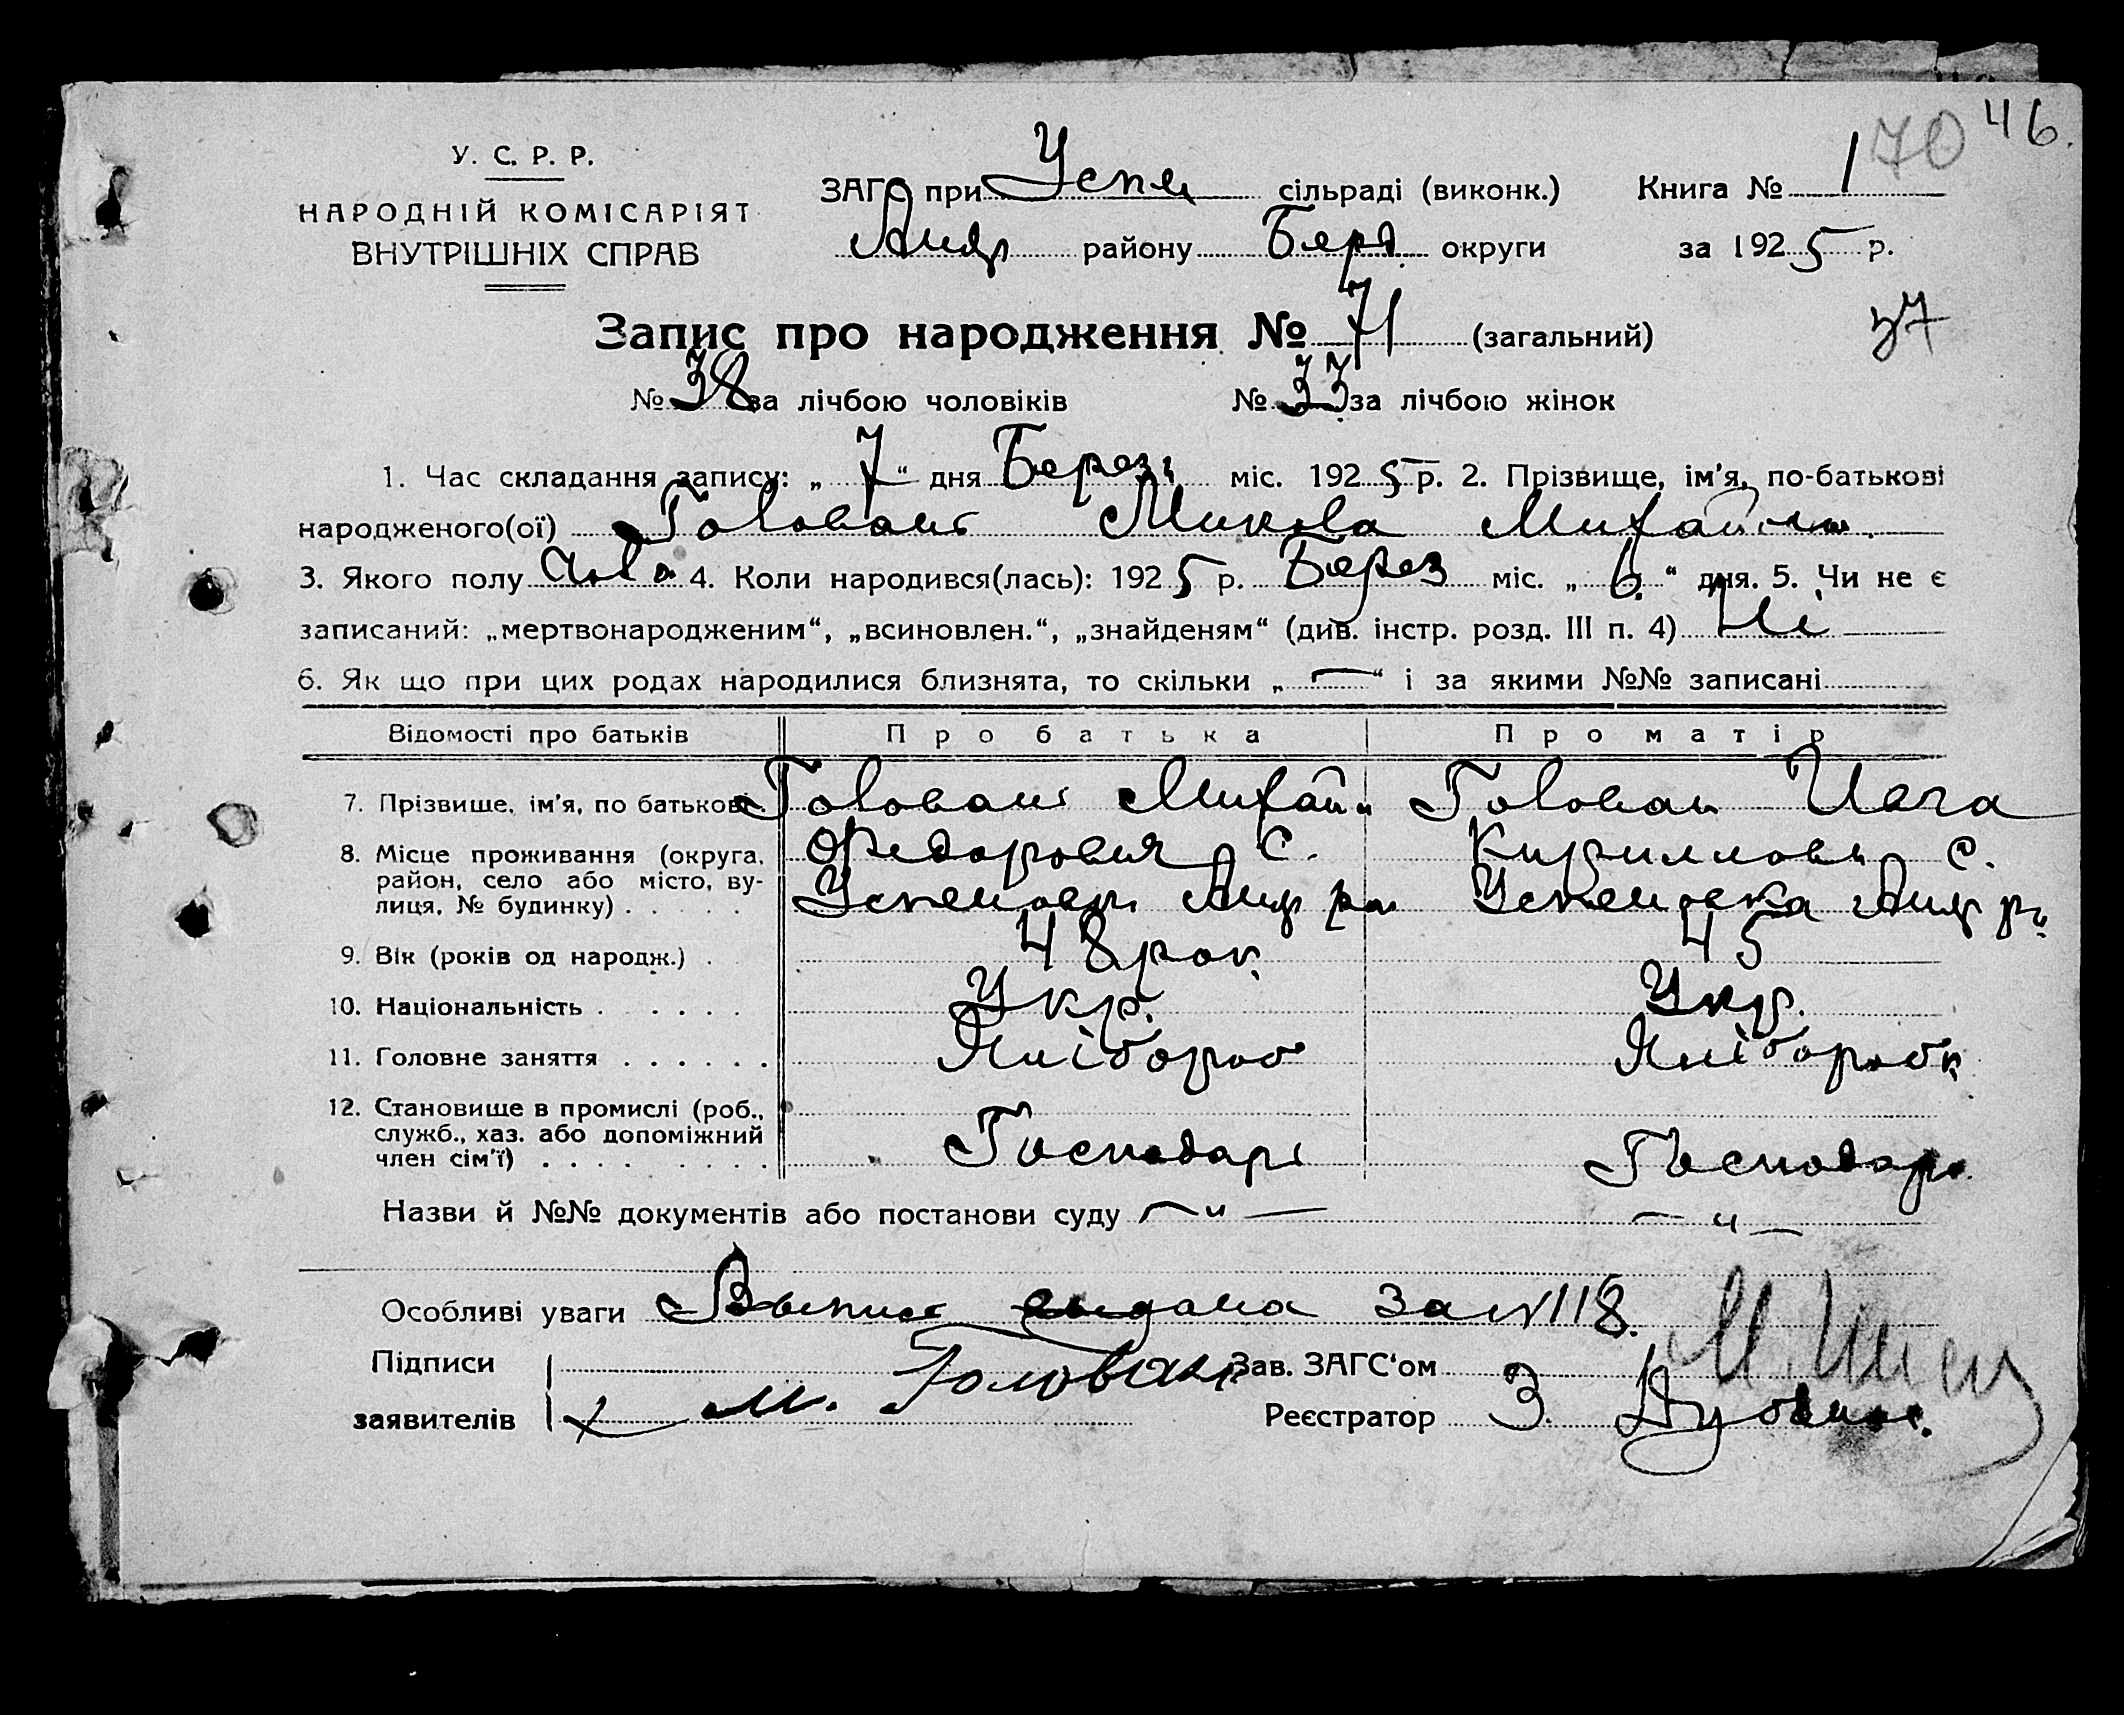 70 46.
У. С. Р. Р.
НАРОДНІЙ КОМІСАРІЯТ
ВНУТРІШНІХ СПРАВ
ЗАГС при Успен сільраді (виконк.) Книга № 1
Андр району Берд. округи за 1925 р.
Запис про народження № 71 (загальний) 37
№ 38 за лічбою чоловіків № 33 за лічбою жінок
1. Час складання запису: „ 7 “ дня Березн міс. 1925 р. 2. Прізвище, ім’я, по-батькові
народженого(ої) Головань Микола Михайлов
3. Якого полу Чолов 4. Коли народився(лась): 1925 р. Берез міс. „ 6. “ дня. 5. Чи не є
записаний: „мертвонародженим“, „всиновлен.“, „знайденям“ (див. інстр. розд. III п. 4) Ні
6. Як що при цих родах народилися близнята, то скільки „ — “ і за якими №№ записані
Відомості про батьків Про батька Про матір
7. Прізвище, ім’я, по батькові Головань Михайл Головань Ивга
8. Місце проживання (округа, район, село або місто, вулиця, № будинку) . . . . . Федорович С. Кириллов С.
Успеновк Андр р-н Успеновка Андр р-н
9. Вік (років од народж.) . 48 рок. 45
10. Національність . . . . . Укр. Укр.
11. Головне заняття . . . . . . Хлібороб Хлібороб
12. Становище в промислі (роб., служб., хаз. або допоміжний член сім’ї) . . . . . . . . Господарь Господар
Назви й №№ документів або постанови суду — „ — — „ —
Особливі уваги Выпись выдана за № 118.
Підписи Зав. ЗАГС‘ом
заявителів М. Головань Реєстратор З.